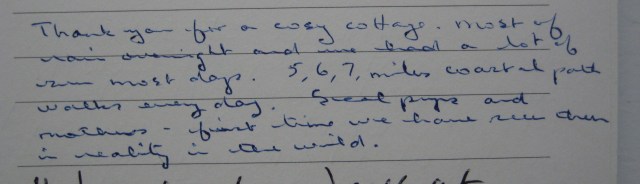 Thank you for a cosy cottage. Most of
rain overnight and we had a lot of
sun most days. 5, 6, 7, miles coastal path
walks every day. Seal pups and
mothers - first time we have seen them
in reality in the wild.